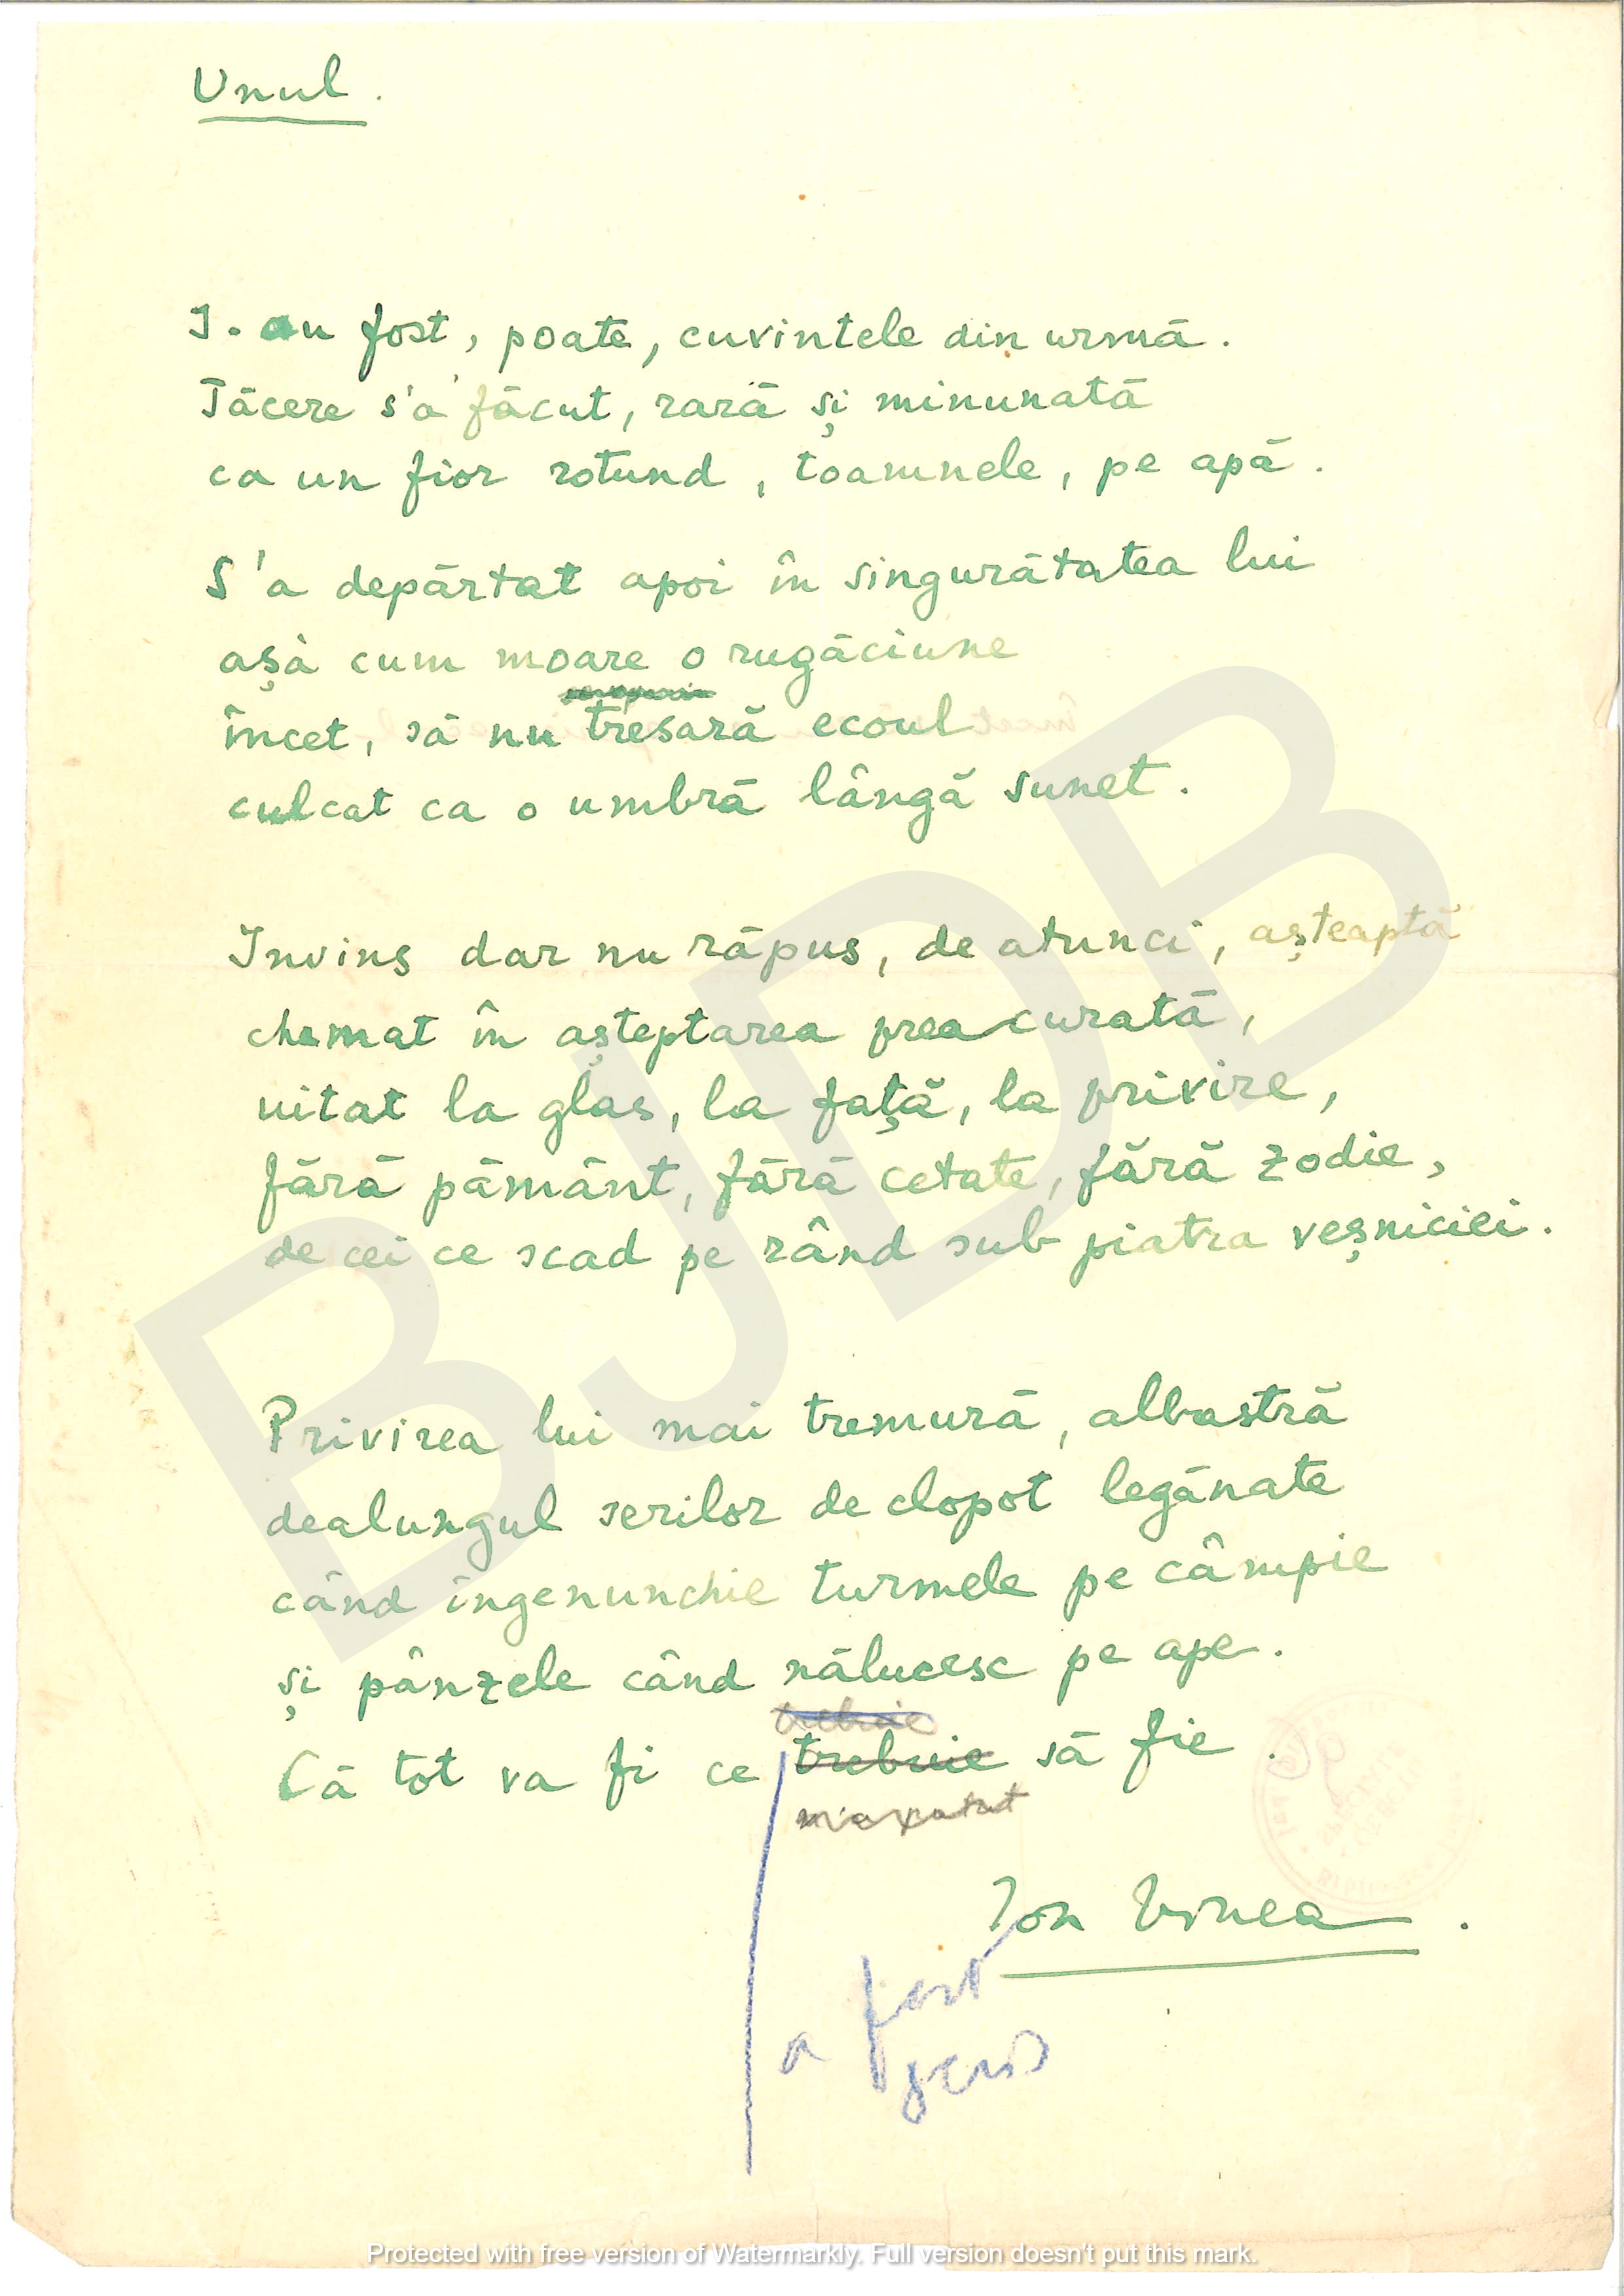 Unul.
I-au fost, poate, cuvintele din urmă.
Tăcere s'a făcut, rară și minunată
ca un fior rotund, toamnele, pe apă.
S'a depărtat apoi în singurătatea lui
așà cum moare o rugăciune
încet, să nu tresară ecoul
culcat ca o umbră lângă sunet.
Invins dar nu răpus, de atunci, așteaptă
chemat în așteptarea prea curată,
uitat la glas, la față, la privire,
fără pământ, fără cetate, fără zodie,
de cei ce scad pe rând sub piatra veșniciei.
Privirea lui mai tremură, albastră
dealungul serilor de clopot legănate
când ingenunchie turmele pe câmpie
și pânzele când nălucesc pe ape.
trebuie
Că tot va fi ce trebuie să fie.
Ion Vinea.
a fost
BJDB
Protected with free version of Watermarkly. Full version doesn't put this mark.